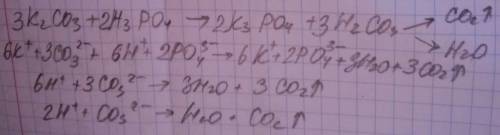 3K₂CO₃+2H₃PO₄→2K₃PO₄+3H₂CO₃ → CO₂↑
→ H₂O
6K⁺+3CO₃²⁻+6H⁺+2PO₄³⁻→6K⁺+2PO₄³⁻+3H₂O+3CO₂↑
6H⁺+3CO₃²⁻→3H₂O+3CO₂↑
2H⁺+CO₃²⁻→H₂O+CO₂↑